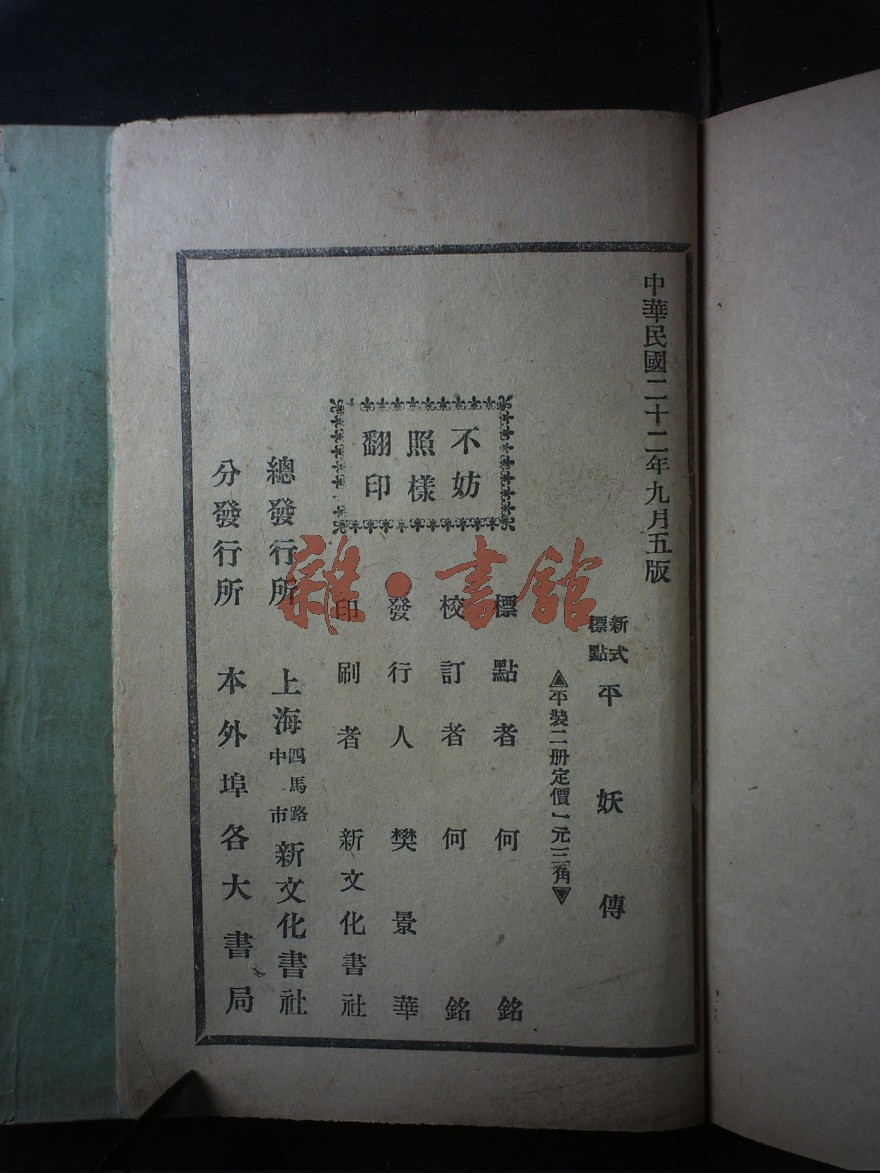 中華民國二十二年九月五版
新式
標點
平妖傳
▲平裝二册定價一元三角▼
不妨
照樣
翻印
標點者 何銘
校訂者 何銘
發行人 樊景華
印刷者 新文化書社
總發行所 上海四馬路中市新文化書社
分發行所 本外埠各大書局
雜·書館